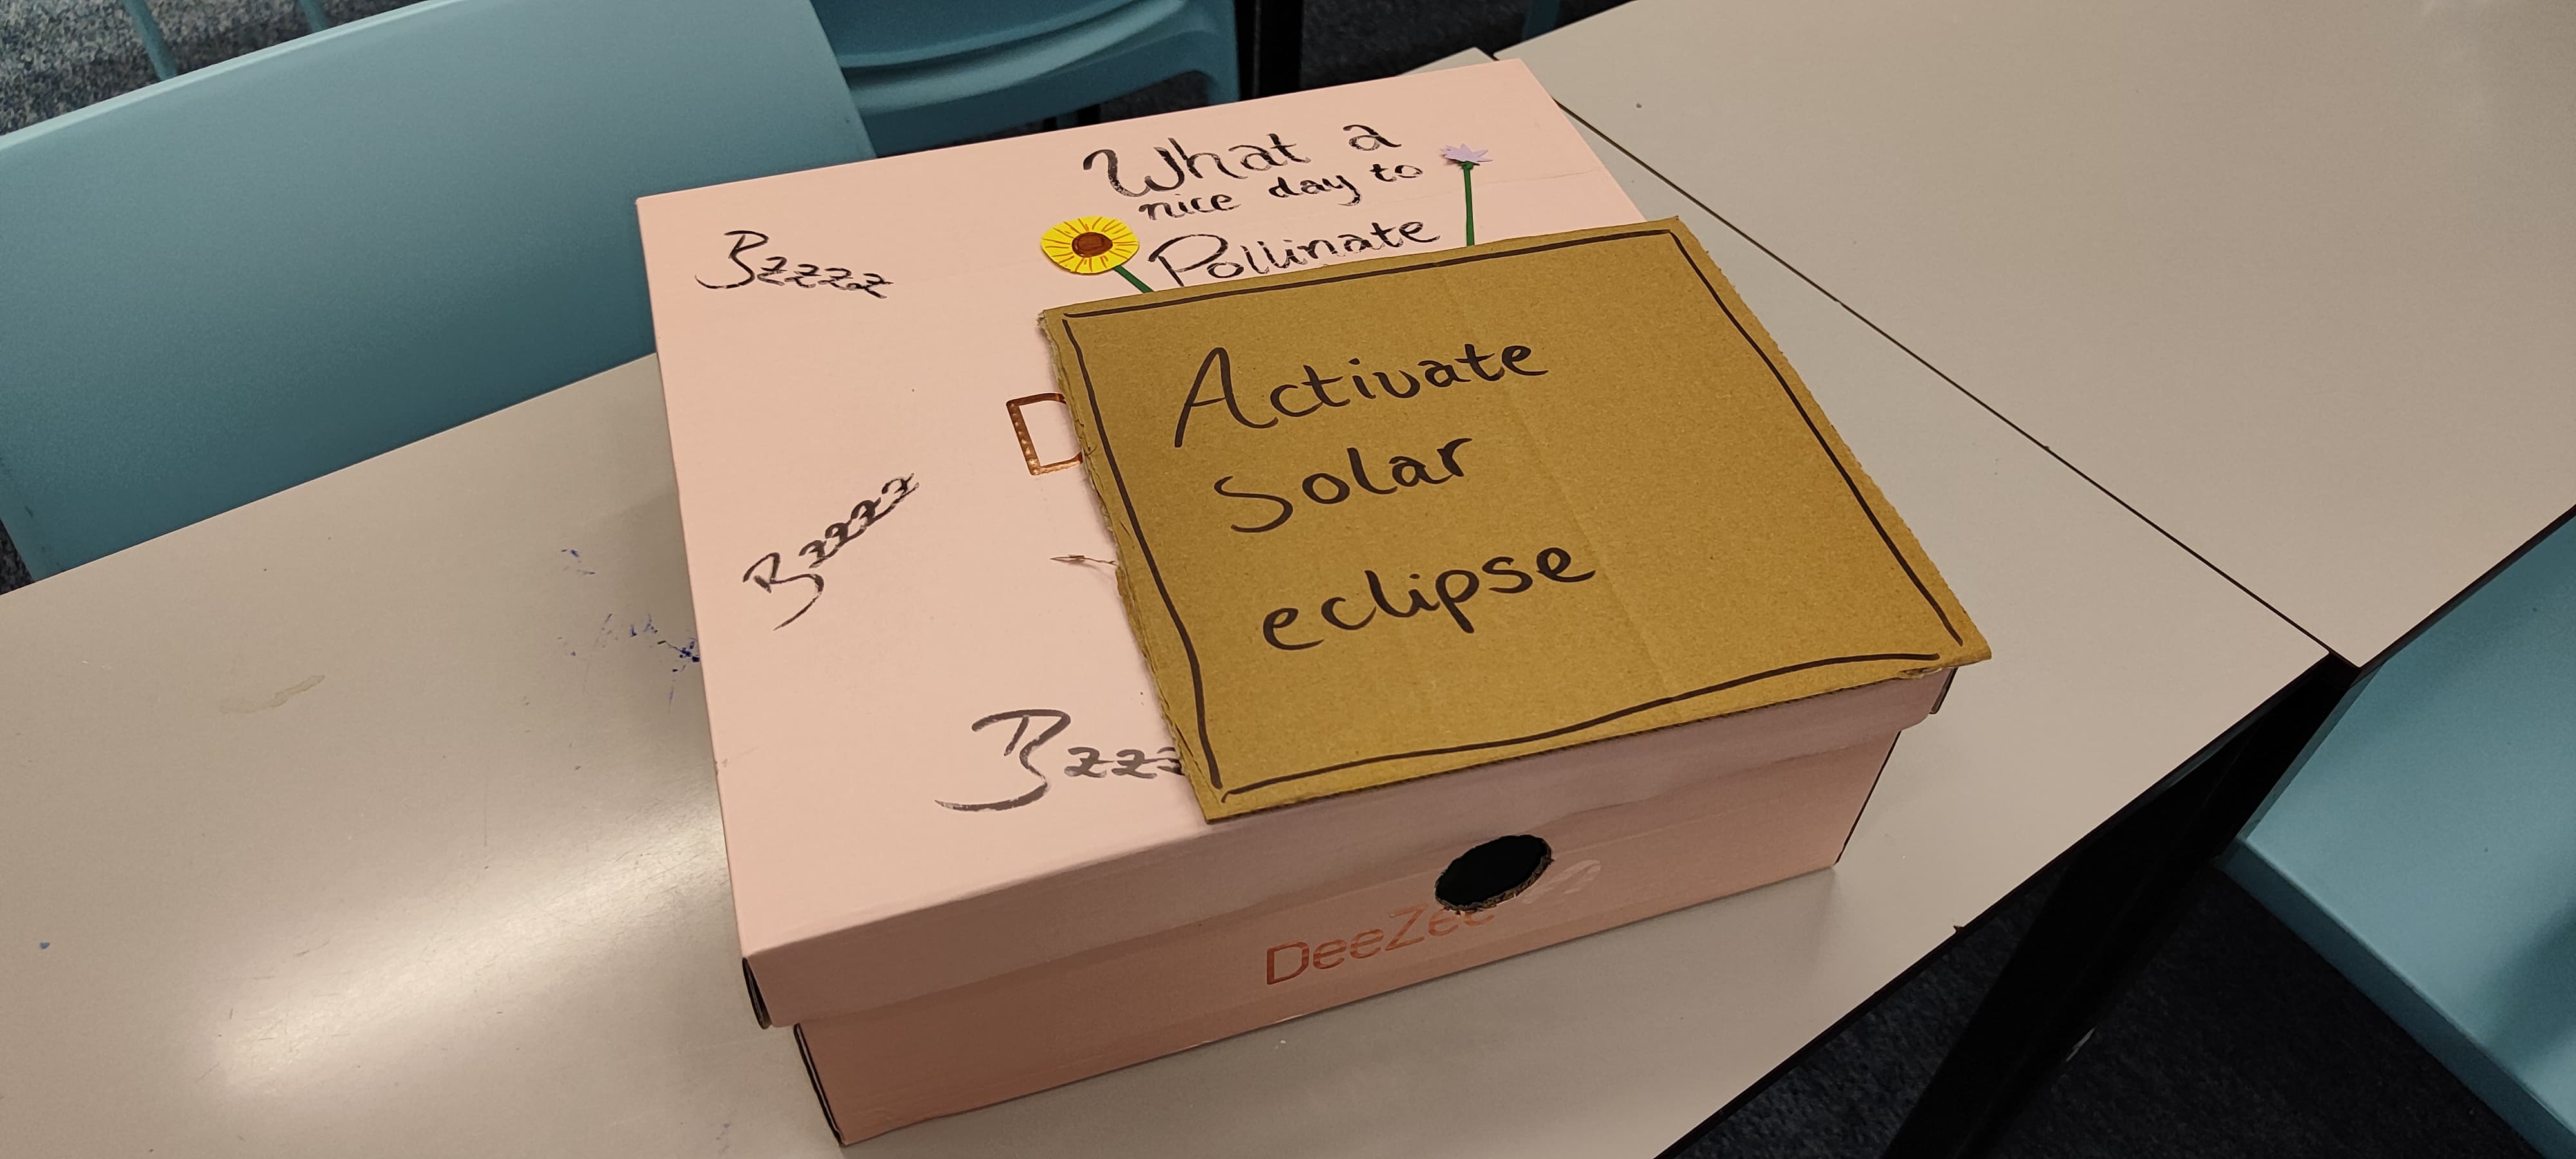 What a
nice day to
Pollinate
Bzzzz
D
Bzzzz
Bzzz
Activate
Solar
eclipse
DeeZee